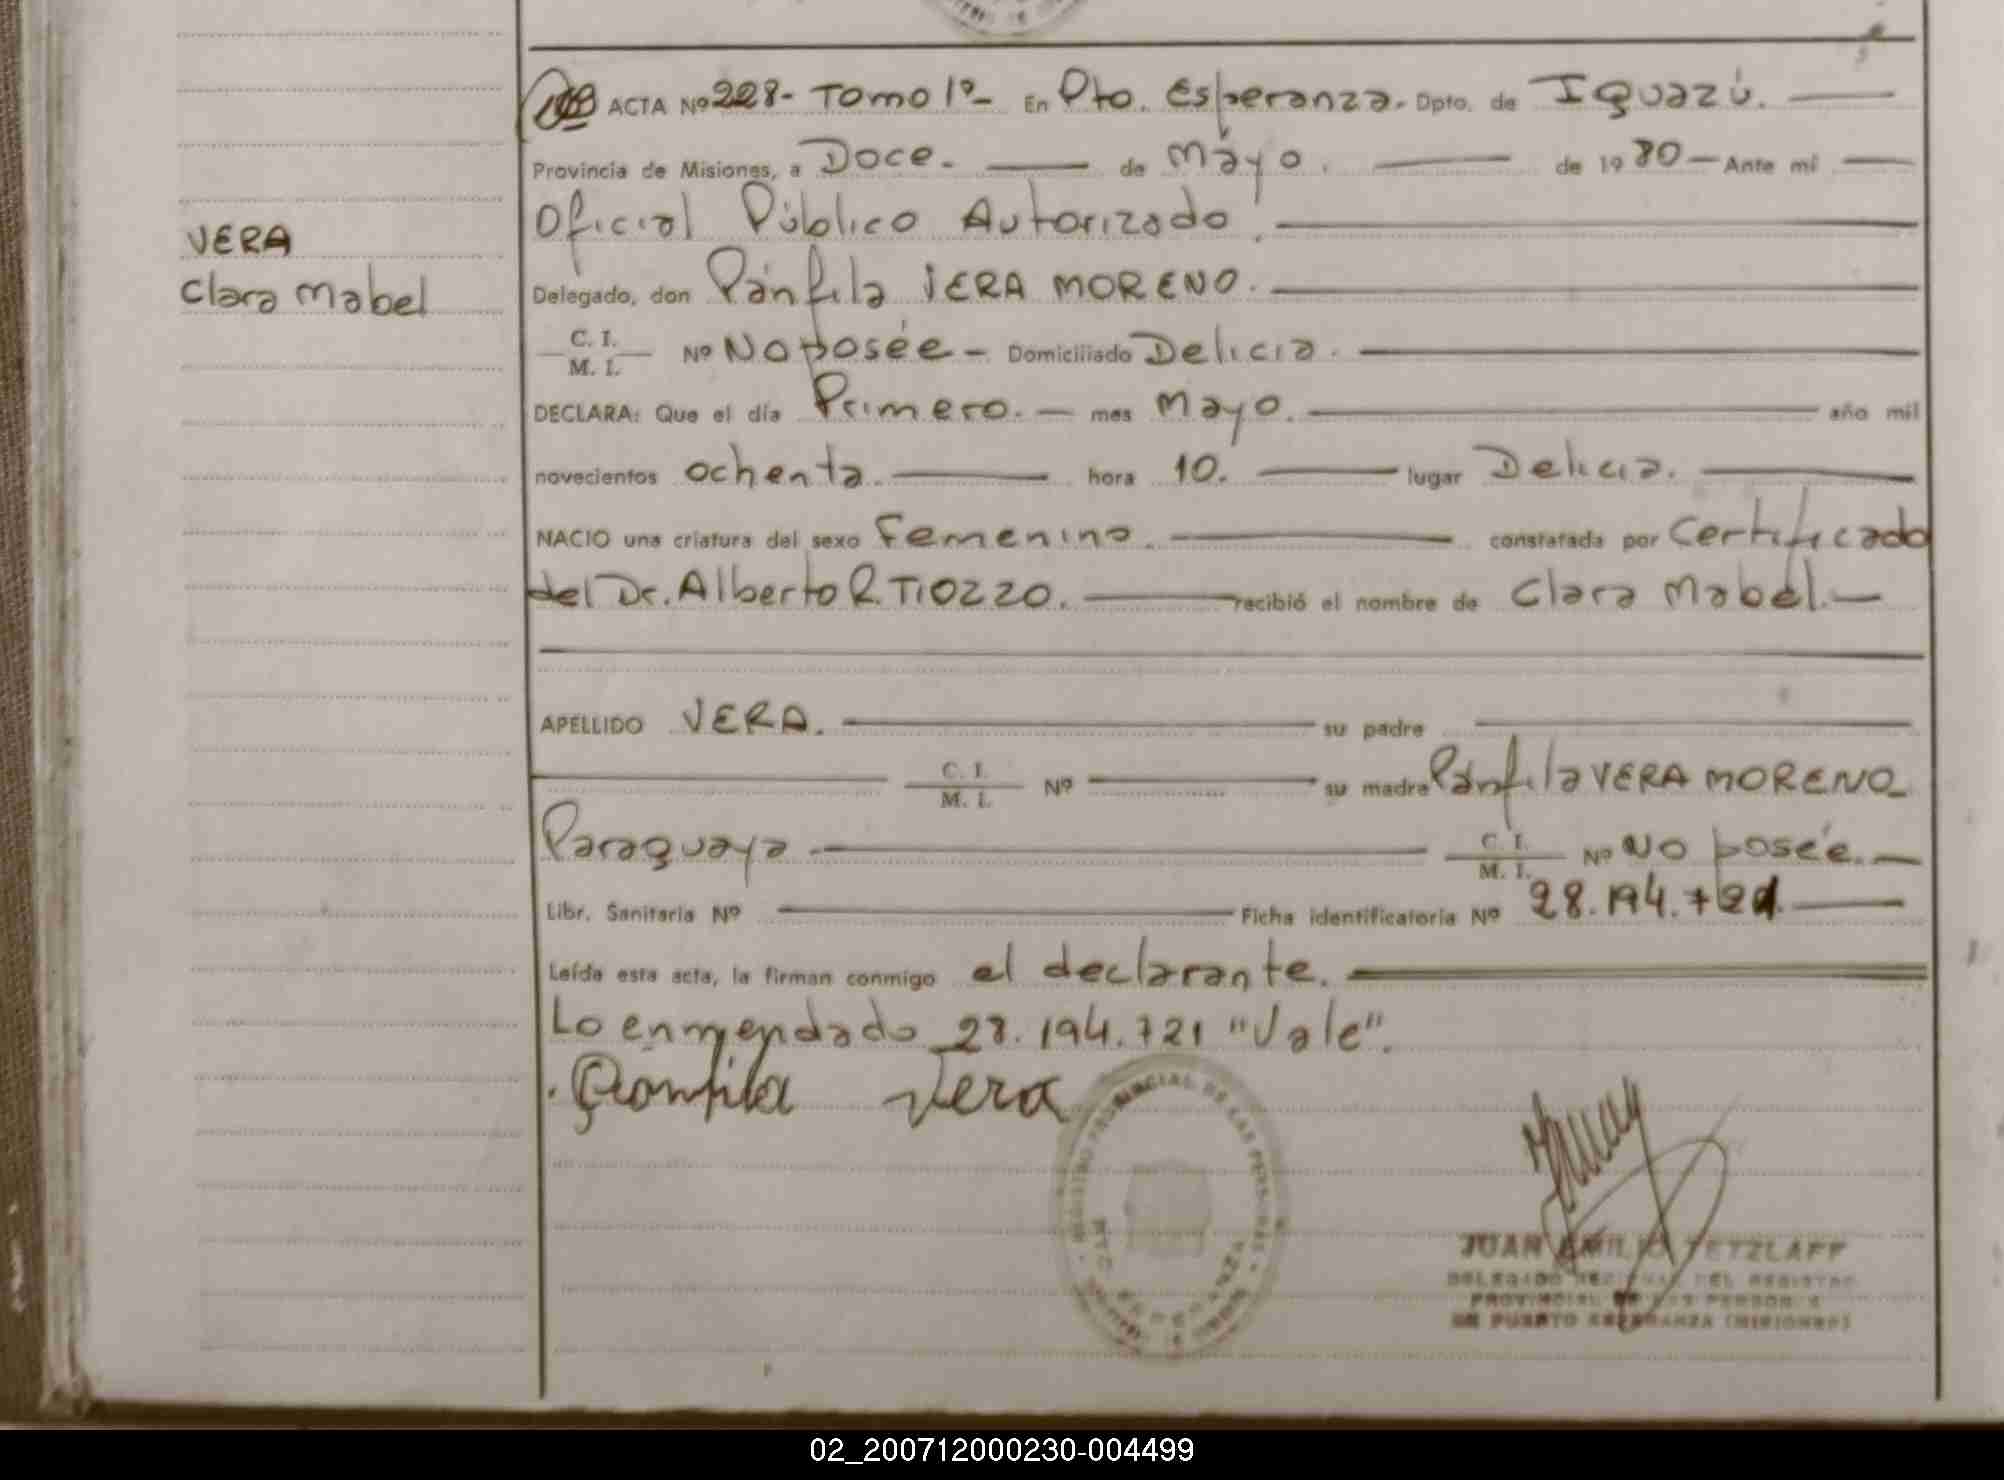 VERA
Clara Mabel
ACTA Nº 228- Tomo 1º- En Pto. Esperanza. Dpto. de Iguazú.
Provincia de Misiones, a Doce. de Mayo. de 1980 Ante mí
Oficial Público Autorizado.
Delegado, don Pánfila VERA MORENO.
C. I.
M. I. Nº No posée - Domiciliado Delicia.
DECLARA: Que el día Primero. mes Mayo. año mil
novecientos ochenta. hora 10. lugar Delicia.
NACIO una criatura del sexo Femenino. constatada por Certificado
del Dr. Alberto R. TIOZZO. recibió el nombre de Clara Mabel.
APELLIDO VERA. su padre
C. I.
M. I. Nº su madre Pánfila VERA MORENO
Paraguaya C. I.
M. I. Nº No posée.
Libr. Sanitaria Nº Ficha identificatoria Nº 28.194.721
Leída esta acta, la firman conmigo el declarante.
Lo enmendado 28.194.721 "Vale".
Panfila Vera
REGISTRO PROVINCIAL DE LAS PERSONAS
PTO ESPERANZA
JUAN EMILIO TETZLAFF
DELEGADO REGIONAL DEL REGISTRO
PROVINCIAL DE LAS PERSONAS
EN PUERTO ESPERANZA (MISIONES)
02_200712000230-004499